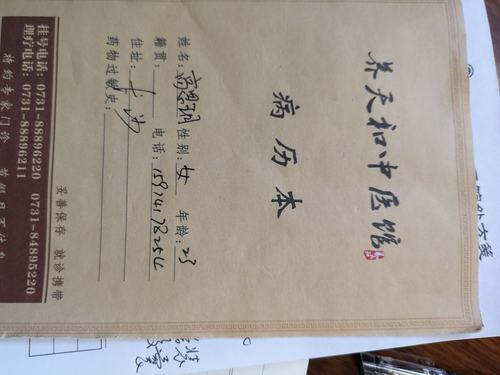 养天和中医馆
病历本
姓名: 高思 性别: 女 年龄: 23
籍贯: 电话: 15914178254
住址: 长沙
药物过敏史:
妥善保存 就诊携带
挂号电话: 0731-88896220 0731-84895220
理疗电话: 0731-88896211
特约专家门诊 节假日不休息
医院处方笺